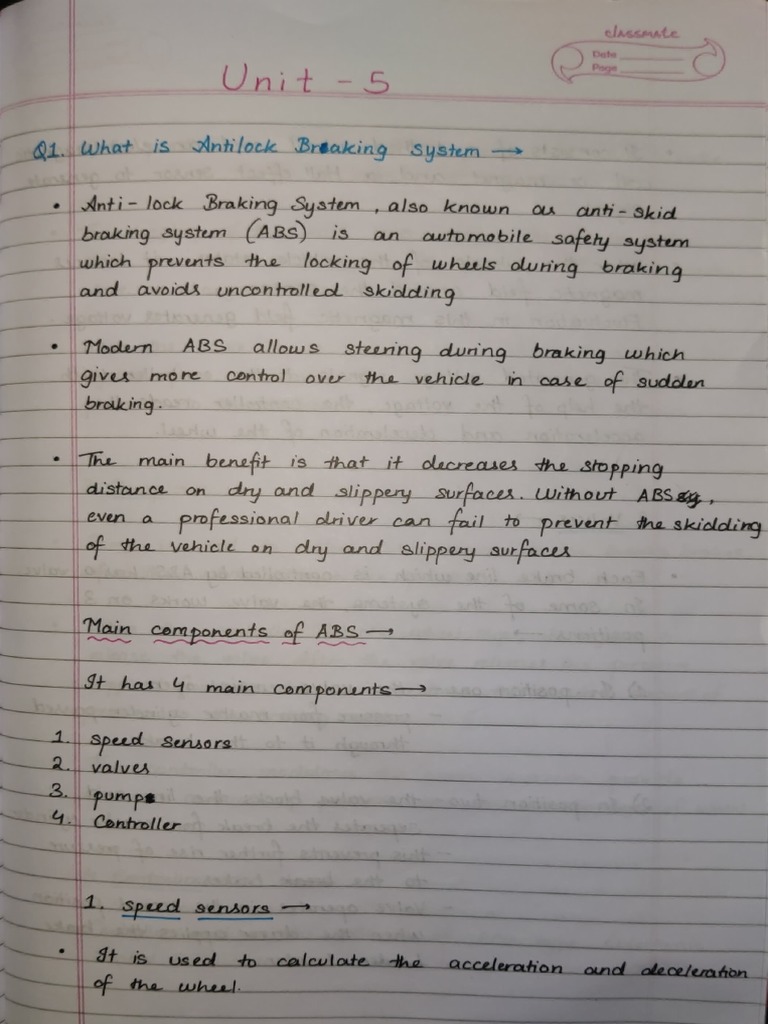 classmate
Date
Page
Unit - 5
Q1. What is Antilock Breaking system →
• Anti-lock Braking System, also known as anti-skid
braking system (ABS) is an automobile safety system
which prevents the locking of wheels during braking
and avoids uncontrolled skidding
• Modern ABS allows steering during braking which
gives more control over the vehicle in case of sudden
braking.
• The main benefit is that it decreases the stopping
distance on dry and slippery surfaces. Without ABS,
even a professional driver can fail to prevent the skidding
of the vehicle on dry and slippery surfaces
Main components of ABS →
It has 4 main components →
1. speed sensors
2. valves
3. pump
4. Controller
1. speed sensors →
• It is used to calculate the acceleration and deceleration
of the wheel.